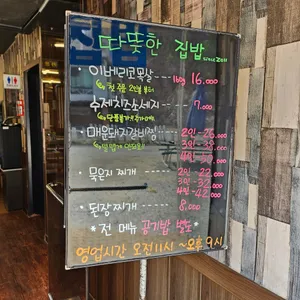 따뜻한 집밥
since 2011
·이베리코목살 --- 160g 16.000
↳첫 주문 2인분 부터
·수제치즈소세지 --- 7.000
·매운돼지갈비찜 --- 2인-26.000
3인-38.000
·묵은지 찌개 --- 2인-22.000
3인-32.000
4인-42.000
·된장찌개 --- 8.000
*전 메뉴 공기밥 별도*
영업시간 오전11시~오후9시